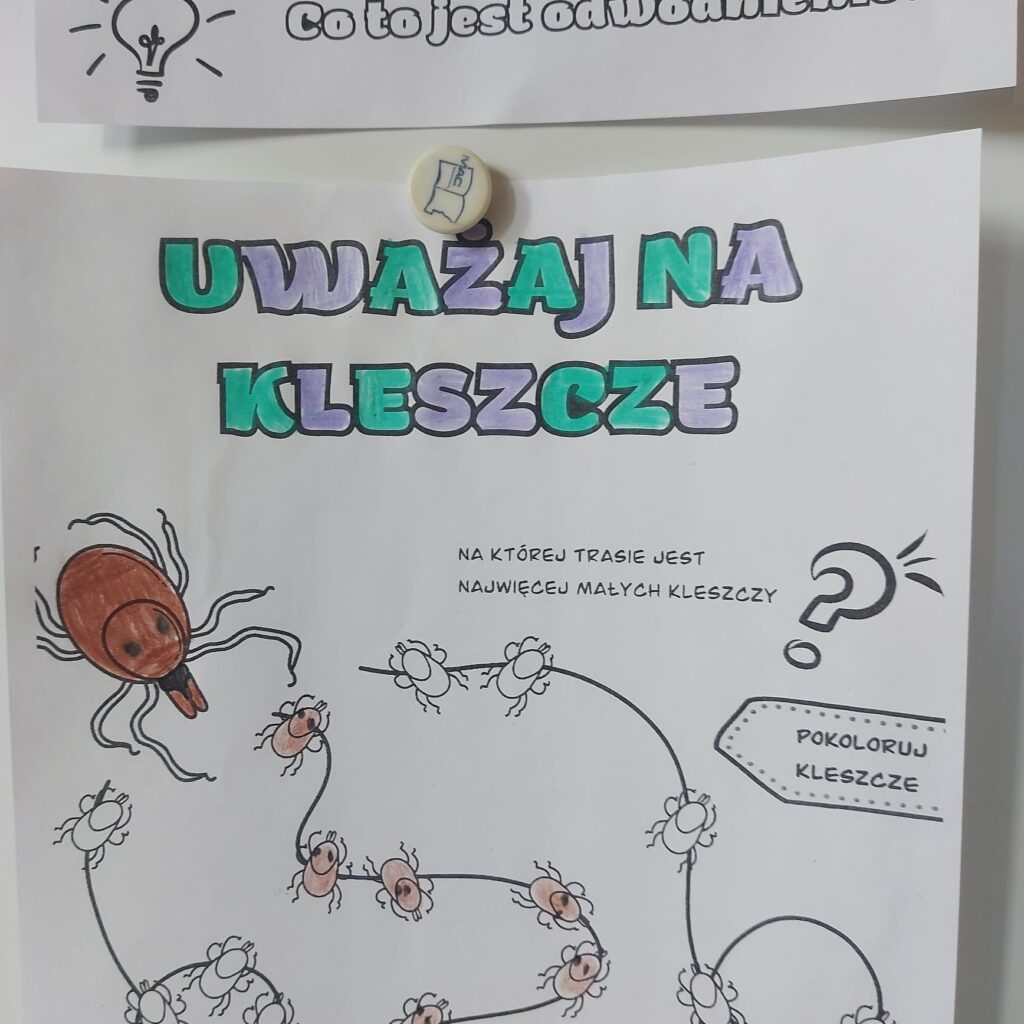 Co to jest odwodnienie?
MAC
UWAŻAJ NA
KLESZCZE
NA KTÓREJ TRASIE JEST
NAJWIĘCEJ MAŁYCH KLESZCZY
POKOLORUJ
KLESZCZE